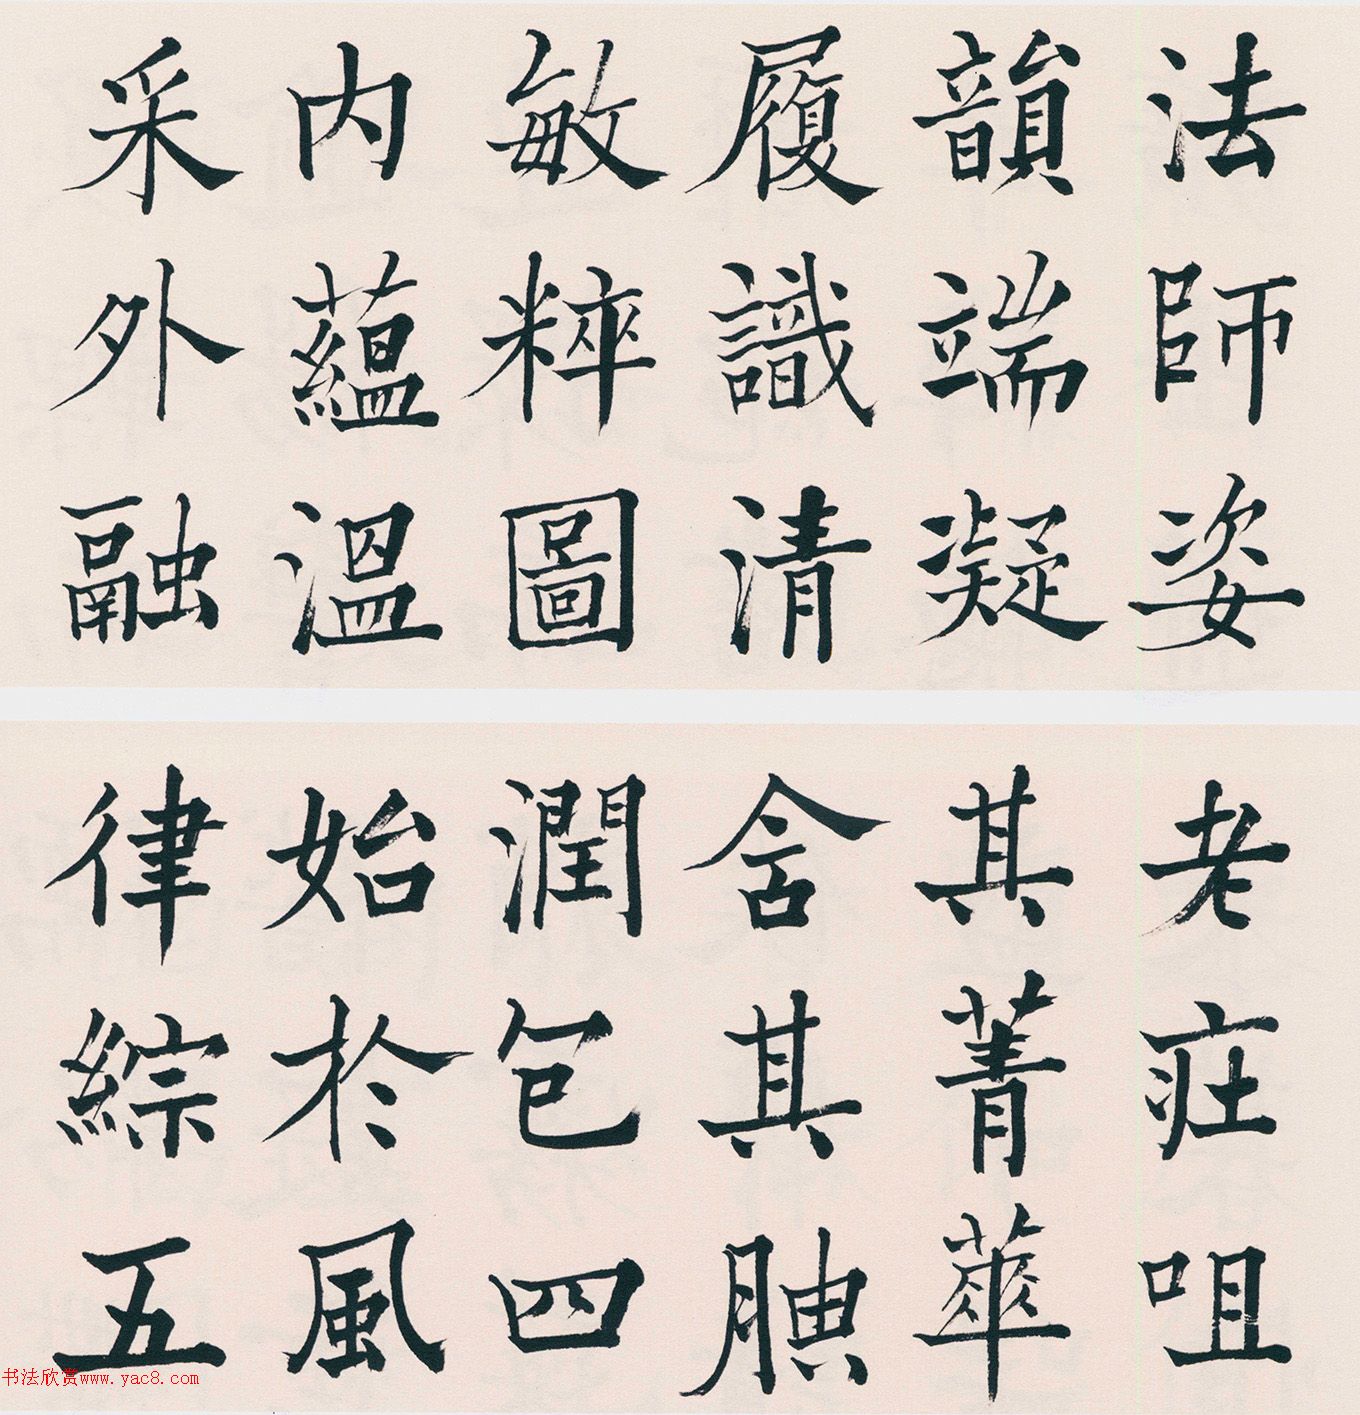 法師姿
韻端凝
履識清
敏粹圖
内藴溫
采外融
老莊咀
其菁華
含其腴
潤包四
始於風
律綜五
书法欣赏www.yac8.com